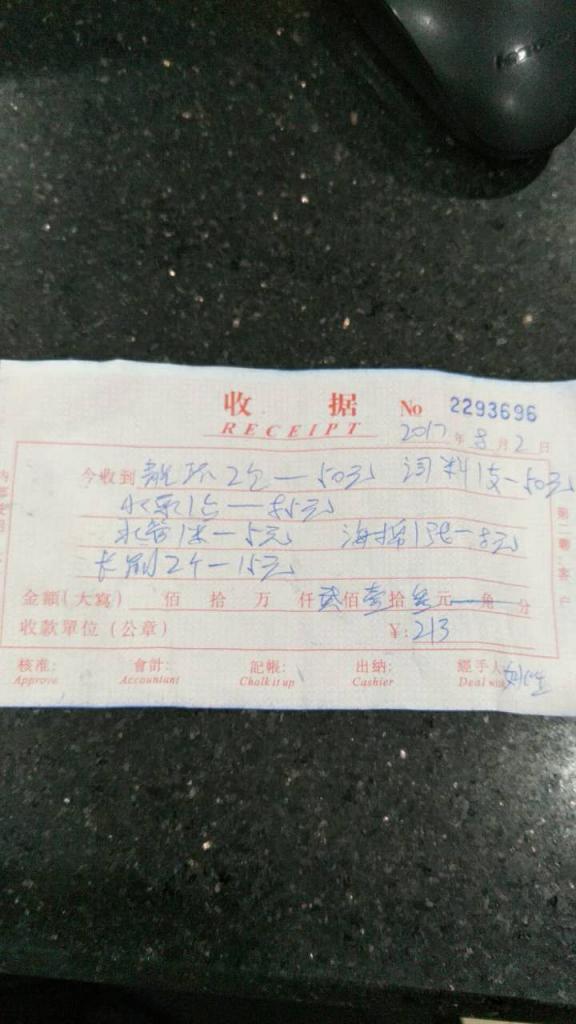 lenovo
收 据 No 2293696
RECEIPT
2017年8月2日
今收到 龙环2仓—50元 饲料1支—50元
水泵1台—85元
水管1米—5元 海棉1张—8元
长刷2个—15元
金額(大寫) 佰 拾 万 仟 贰佰壹拾叁元 角 分
收款單位(公章) ¥:213
核准: 會計: 記帳: 出納: 經手人
Approve Accountant Chalk it up Cashier Deal with
第二聯:客户